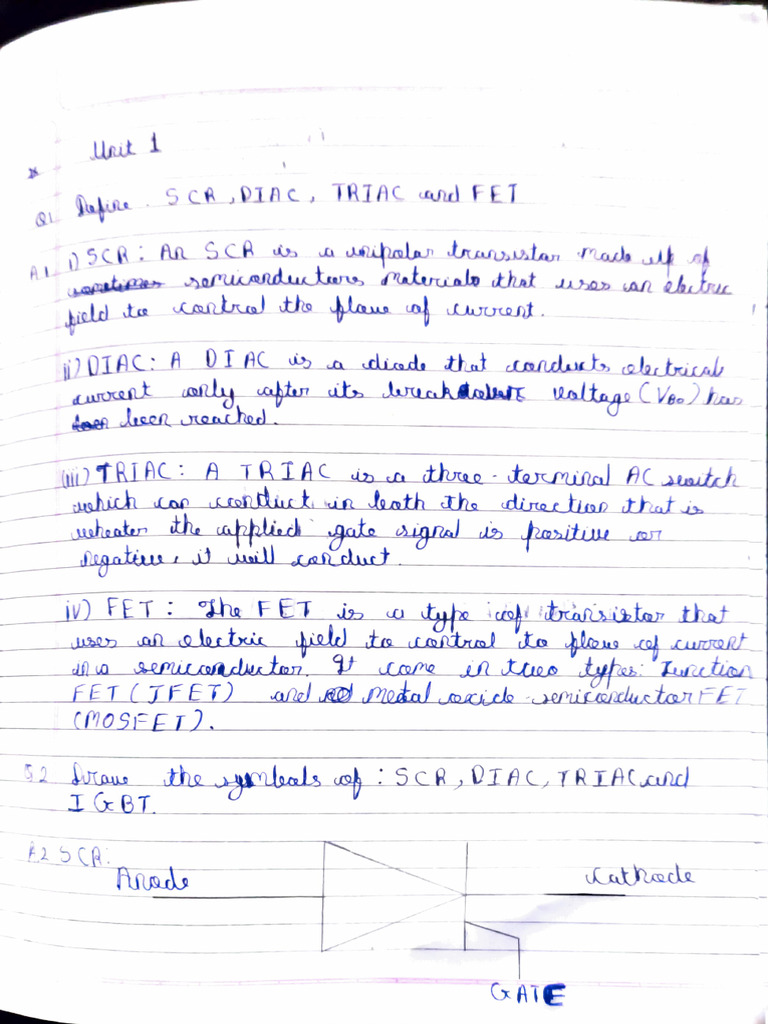 Unit 1
Q1. Define. SCR, DIAC, TRIAC and FET
A.1. i) SCR: An SCR is a unipolar transistor made up of
semiconductors materials that uses an electric
field to control the flow of current.
ii) DIAC: A DIAC is a diode that conducts electrical
current only after its breakdown voltage (VBO) has
been reached.
(iii) TRIAC: A TRIAC is a three-terminal AC switch
which can conduct in both the direction that is
wheater the applied gate signal is positive or
negative, it will conduct.
iv) FET: The FET is a type of transistor that
uses an electric field to control to flow of current
in a semiconductor. It come in two types: Junction
FET (JFET) and metal oxide-semiconductor FET
(MOSFET).
Q.2 Draw the symbols of: SCR, DIAC, TRIAC and
IGBT.
A.2 SCR:
Anode Cathode
GATE